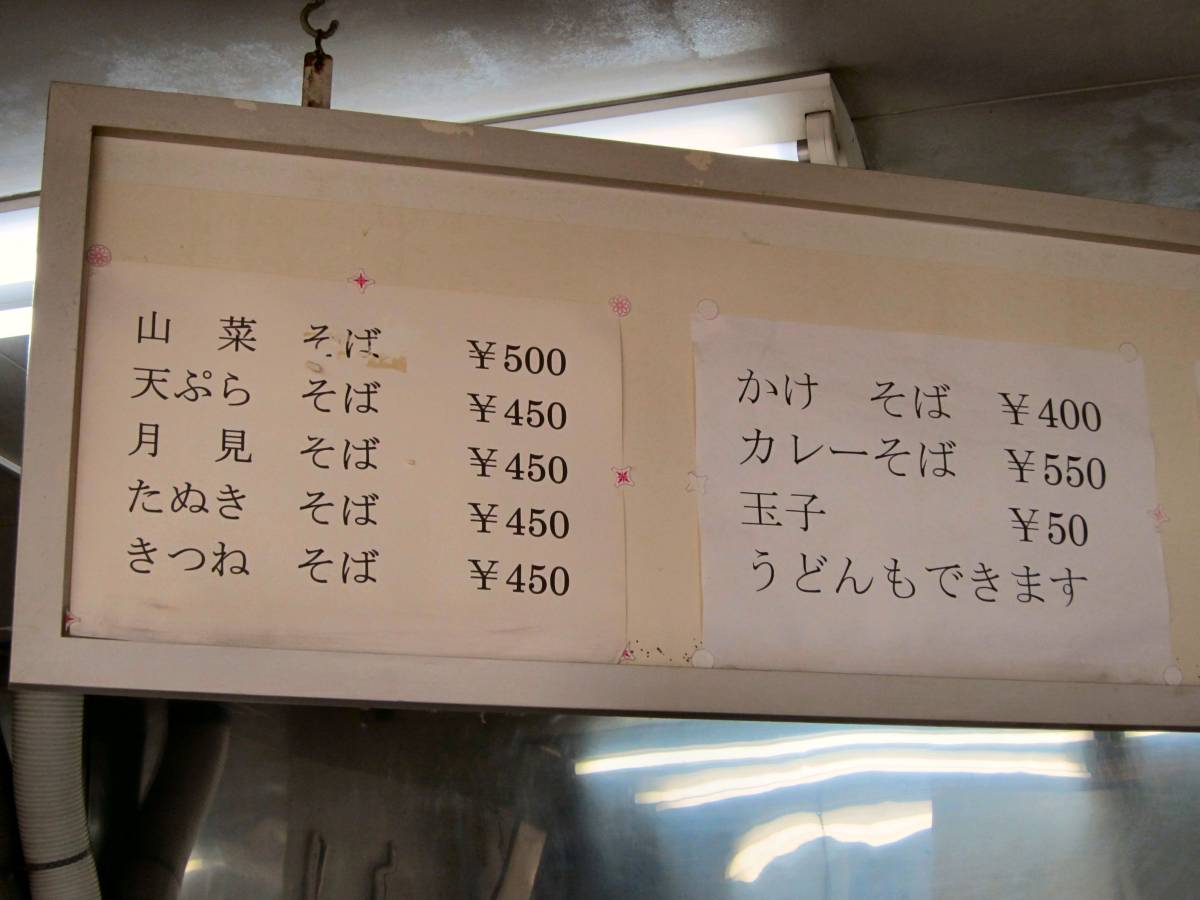 山　菜　そば　￥500
天ぷら　そば　￥450
月　見　そば　￥450
たぬき　そば　￥450
きつね　そば　￥450
かけ　そば　￥400
カレーそば　￥550
玉子　￥50
うどんもできます